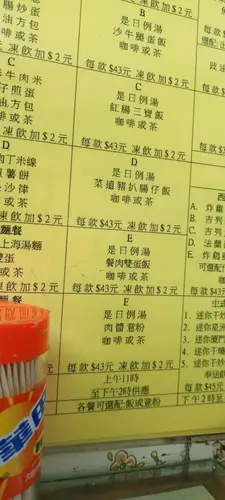 腸炒蛋
油方包
啡或茶
凍飲加$2元
C
牛肉米
子煎蛋
油方包
啡或茶
凍飲加$2元
D
肉丁米線
薯餅
沙律
或茶
凍飲加$2元
麵餐
上海湯麵
雙蛋
或茶
凍飲加$2元
每款$43元 凍飲加$2元
B
是日例湯
沙牛腩蛋飯
咖啡或茶
每款$43元 凍飲加$2元
C
是日例湯
紅腸三寶飯
咖啡或茶
每款$43元 凍飲加$2元
D
是日例湯
菜遠豬扒腸仔飯
咖啡或茶
每款$43元 凍飲加$2元
E
是日例湯
餐肉雙蛋飯
咖啡或茶
每款$43元 凍飲加$2元
F
是日例湯
肉醬意粉
咖啡或茶
每款$43元 凍飲加$2元
上午11時
至下午2時供應
各餐可選配:飯或意粉
每款$43
每款$3
西
A. 炸雞
B. 吉列
C. 吉列
D. 法蘭
E. 炸雞
可選配
每款
中式
1. 迷你干炒
2. 迷你星洲
3. 迷你廈門
4. 迷你干燒
5. 迷你干炒
奉送飲
每款$45元
下午2時至